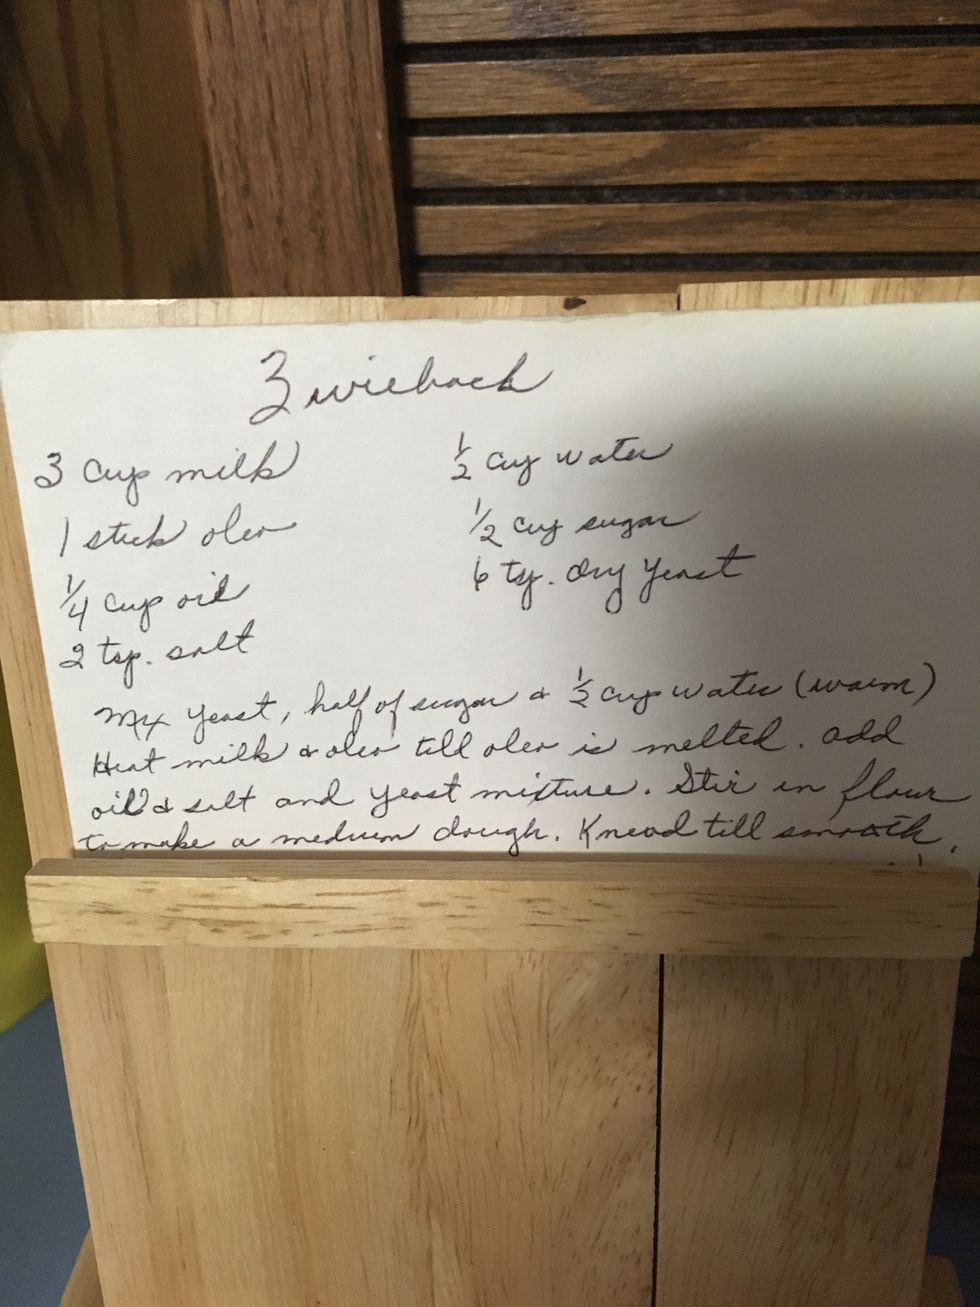 Zwieback
3 cup milk
1 stick oleo
1/4 cup oil
2 tsp. salt
1/2 cup water
1/2 cup sugar
6 tsp. dry yeast
Mix yeast, half of sugar & 1/2 cup water (warm)
Heat milk & oleo till oleo is melted. add
oil & salt and yeast mixture. Stir in flour
to make a medium dough. Knead till smooth.